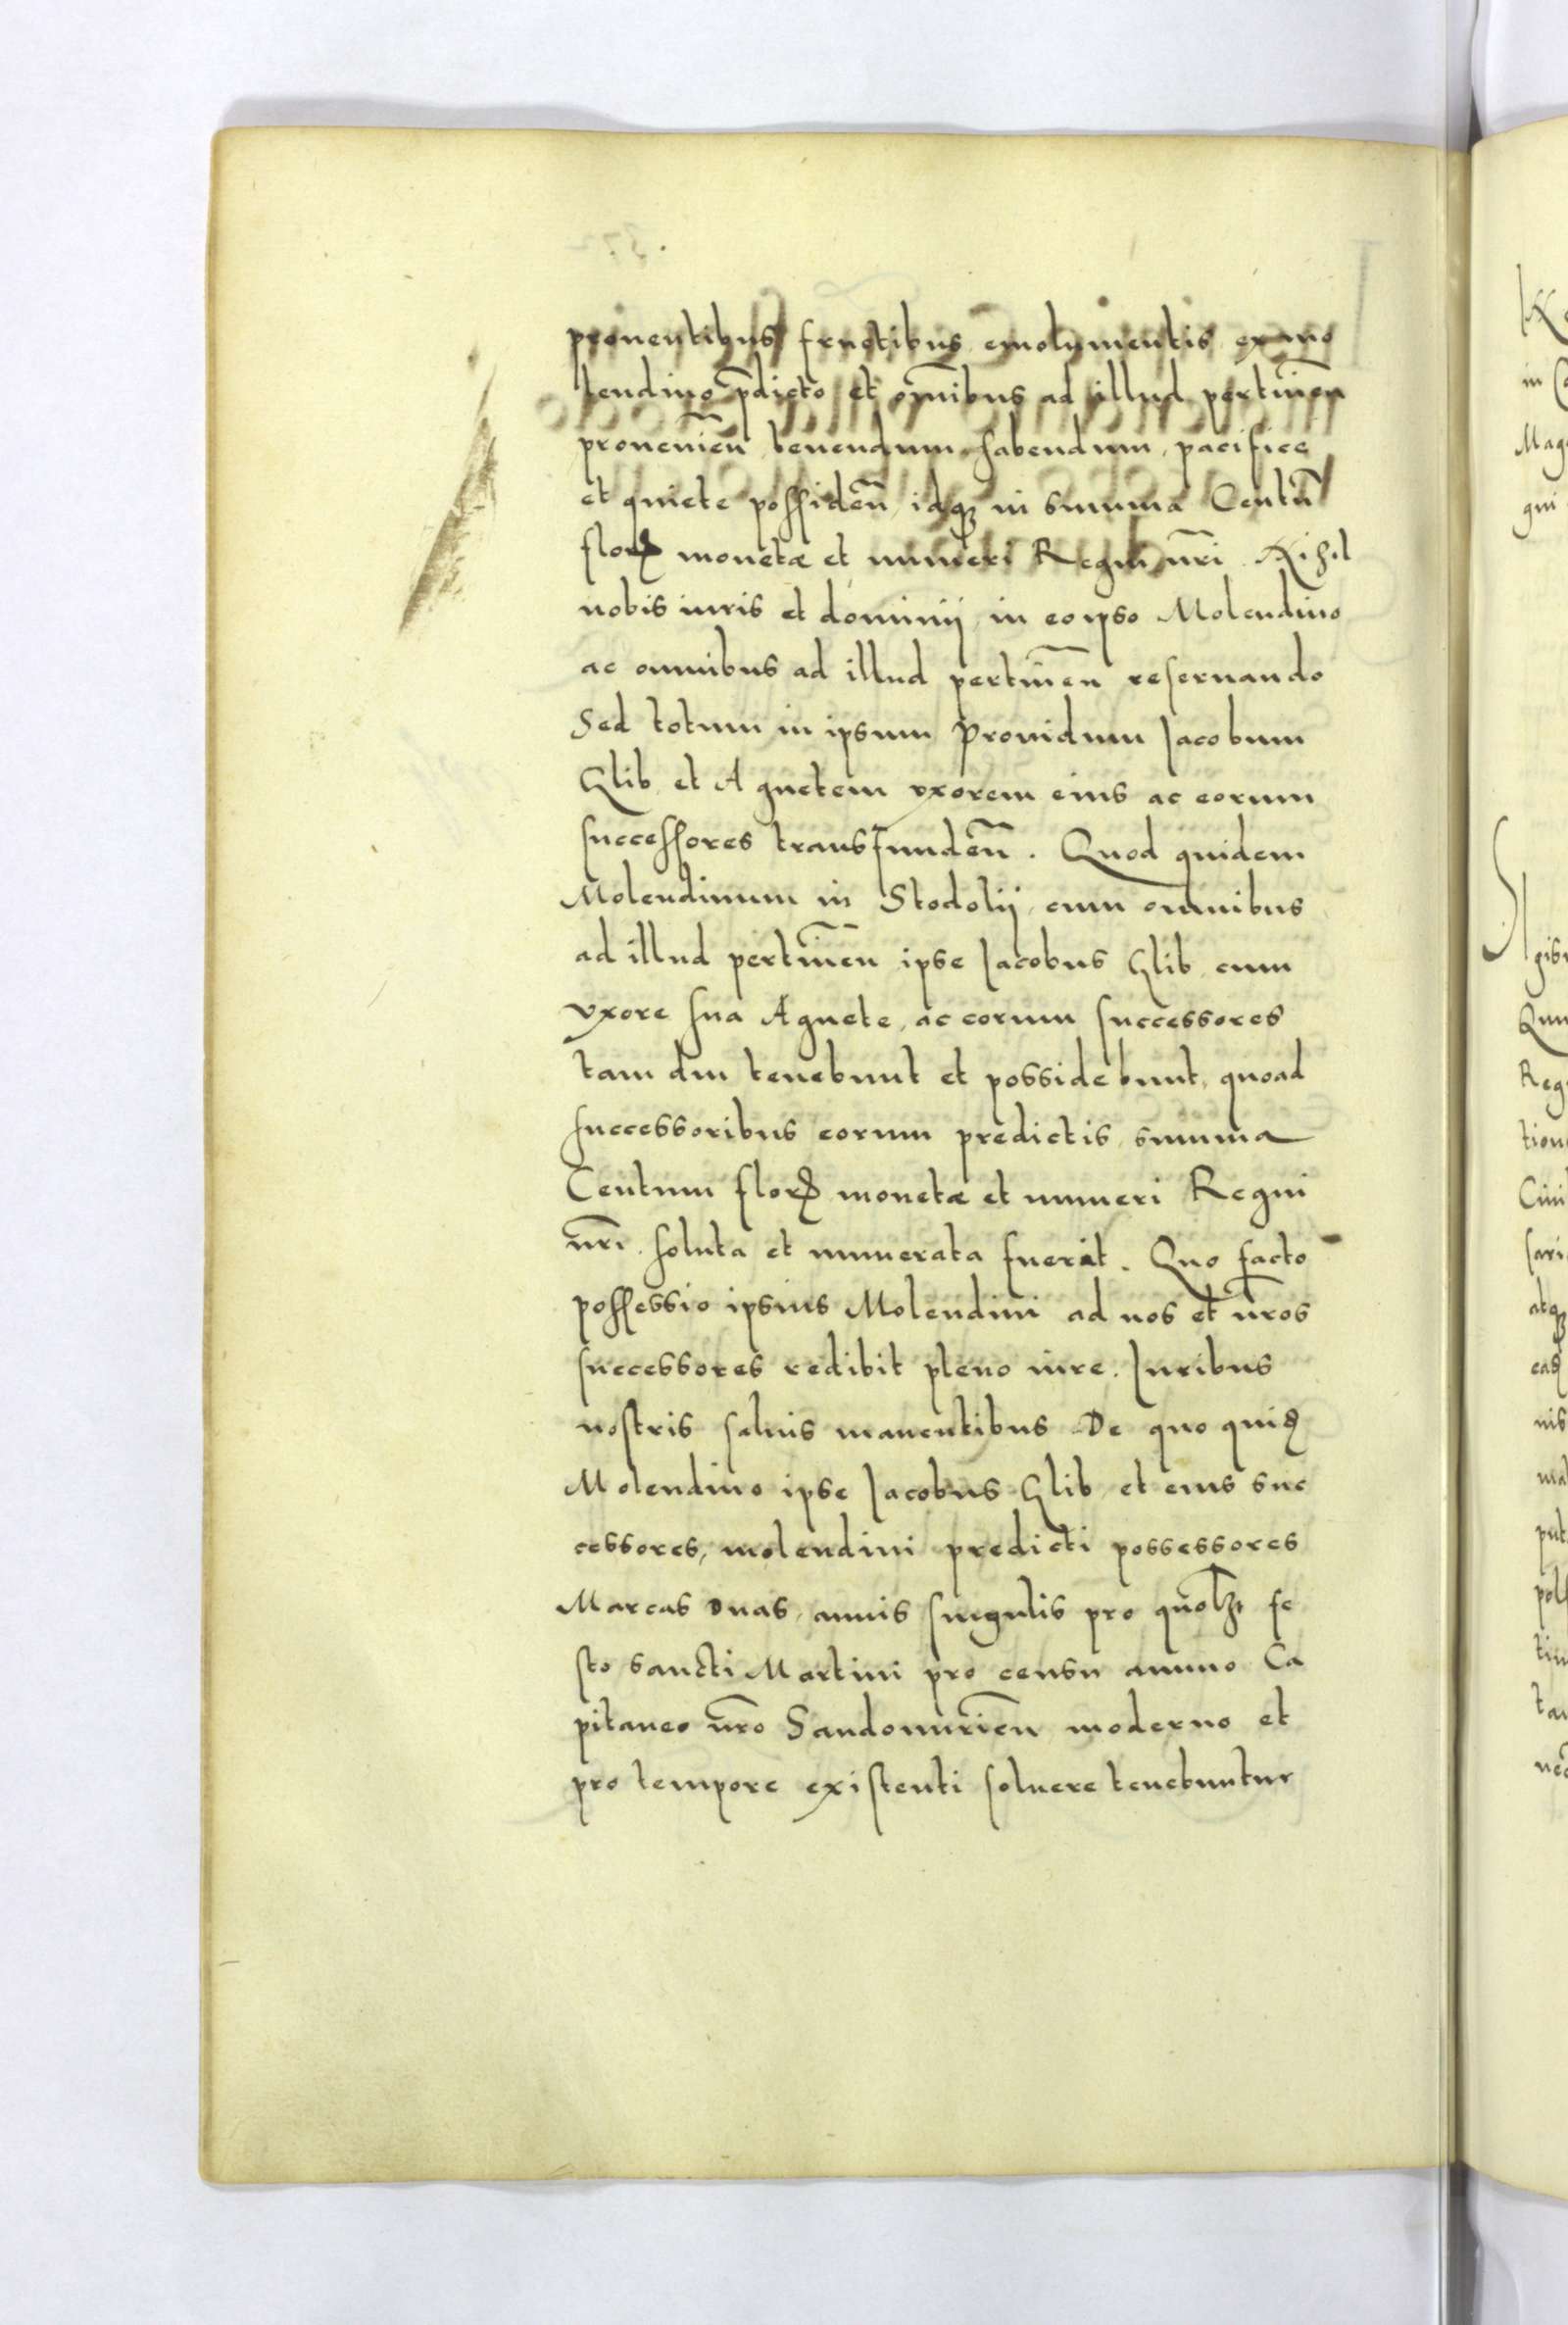 prouentibus fructibus emolumentis ex mo
lendino p̄dicto et oīnibus ad illud pertineñ
proueniēn tenendum habendum, pacifice
et quiete possideñ, idqʒ in summa Centū
florꝝ monetæ et numeri Regni nr̄i. Nihil
nobis iuris et dominij, in eo ipso Molendino
ac omnibus ad illud pertineñ reseruando
Sed totum in ipsum prouidum Jacobum
Glib et Agnetem vxorem eius ac eorum
successores transfundeñ. Quod quidem
Molendinum in Stodolij, cum omnibus
ad illud pertineñ ipse Jacobus Glib cum
vxore sua Agnete, ac eorum successores
tam diu tenebunt et possidebunt, quoad
successoribus eorum predictis summa
Centum florꝝ monetæ et numeri Regni
nr̄i. soluta et numerata fuerit. Quo facto
possessio ipsius Molendini ad nos et nr̄os
successores redibit pleno iure. Juribus
nostris saluis manentibus De quo quiꝺ
Molendino ipse Jacobus Glib et eius suc
cessores, molendini predicti possessores
Marcas duas, annis singulis pro quolꝫ fe
sto sancti Martini pro censu annuo Ca
pitaneo nr̄o Sandomirieñ moderno et
pro tempore existenti soluere tenebuntur